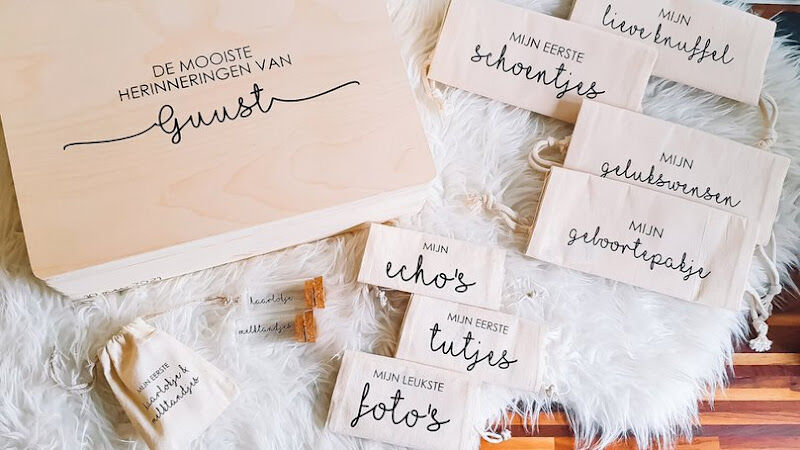 DE MOOISTE
HERINNERINGEN VAN
Guust
MIJN
lieve knuffel
MIJN EERSTE
schoentjes
MIJN
gelukswensen
MIJN
geboortepakje
MIJN
echo's
MIJN EERSTE
tutjes
MIJN LEUKSTE
foto's
haarlokje
melktandjes
MIJN EERSTE
haarlokje &
melktandjes